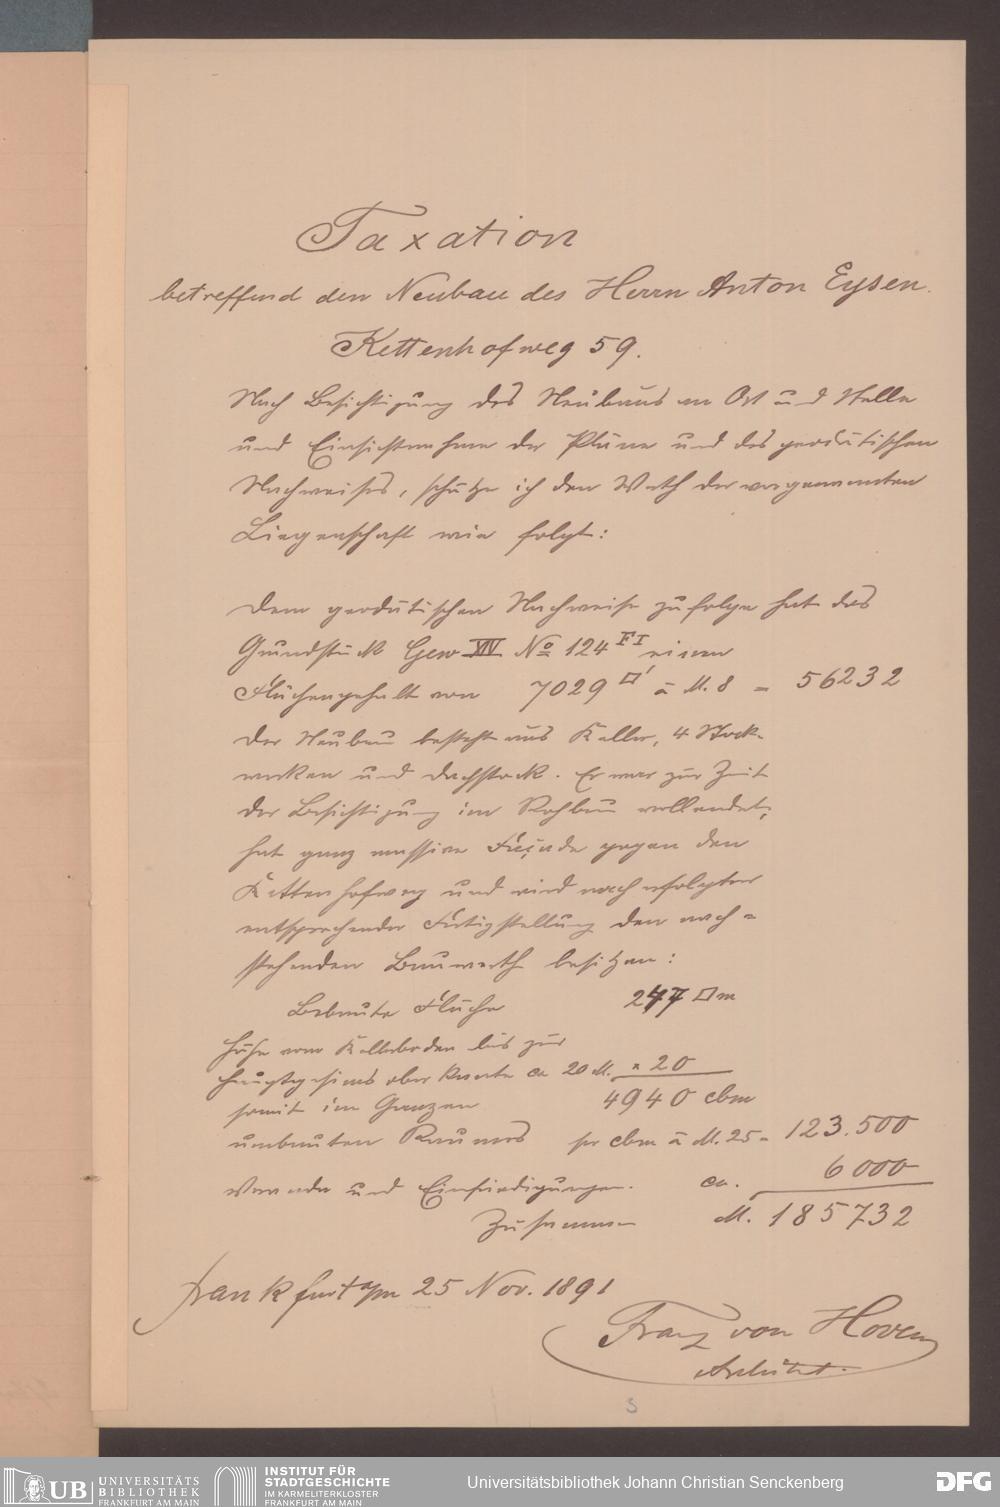 Taxation
betreffend den Neubau des Herrn Anton Eysen.
Kettenhofweg 59.
Nach Besichtigung des Neubaus an Ort und Stelle
und Einsichtnahme der Pläne und des geodätischen
Nachweises, schätze ich den Werth der vorgenannten
Liegenschaft wie folgt:
Dem geodätischen Nachweise zufolge hat das
Grundstück Gew XIV No 124 FI einen
Flächengehalt von 7029 □' à M. 8 = 56232
Der Neubau besteht aus Keller, 4 Stock-
werken und Dachstock. Er war zur Zeit
der Besichtigung im Rohbau vollendet,
hat ganz massive Façade gegen den
Kettenhofweg und wird nach erfolgter
entsprechender Fertigstellung den nach=
stehenden Bauwerth besitzen:
Bebaute Fläche 247 □m
Höhe vom Kellerboden bis zur
Hauptgesims ober Kante ca 20 M. x 20
somit im Ganzen 4940 cbm
umbauten Raumes per cbm à M. 25 = 123.500
Veranda und Einfriedigungen. ca. 6000
Zusammen M. 185732
Frankfurt a/m 25 Nov. 1891
Franz von Hoven
Architect.
3
UB UNIVERSITÄTS
BIBLIOTHEK
FRANKFURT AM MAIN
INSTITUT FÜR
STADTGESCHICHTE
IM KARMELITERKLOSTER
FRANKFURT AM MAIN
Universitätsbibliothek Johann Christian Senckenberg
DFG